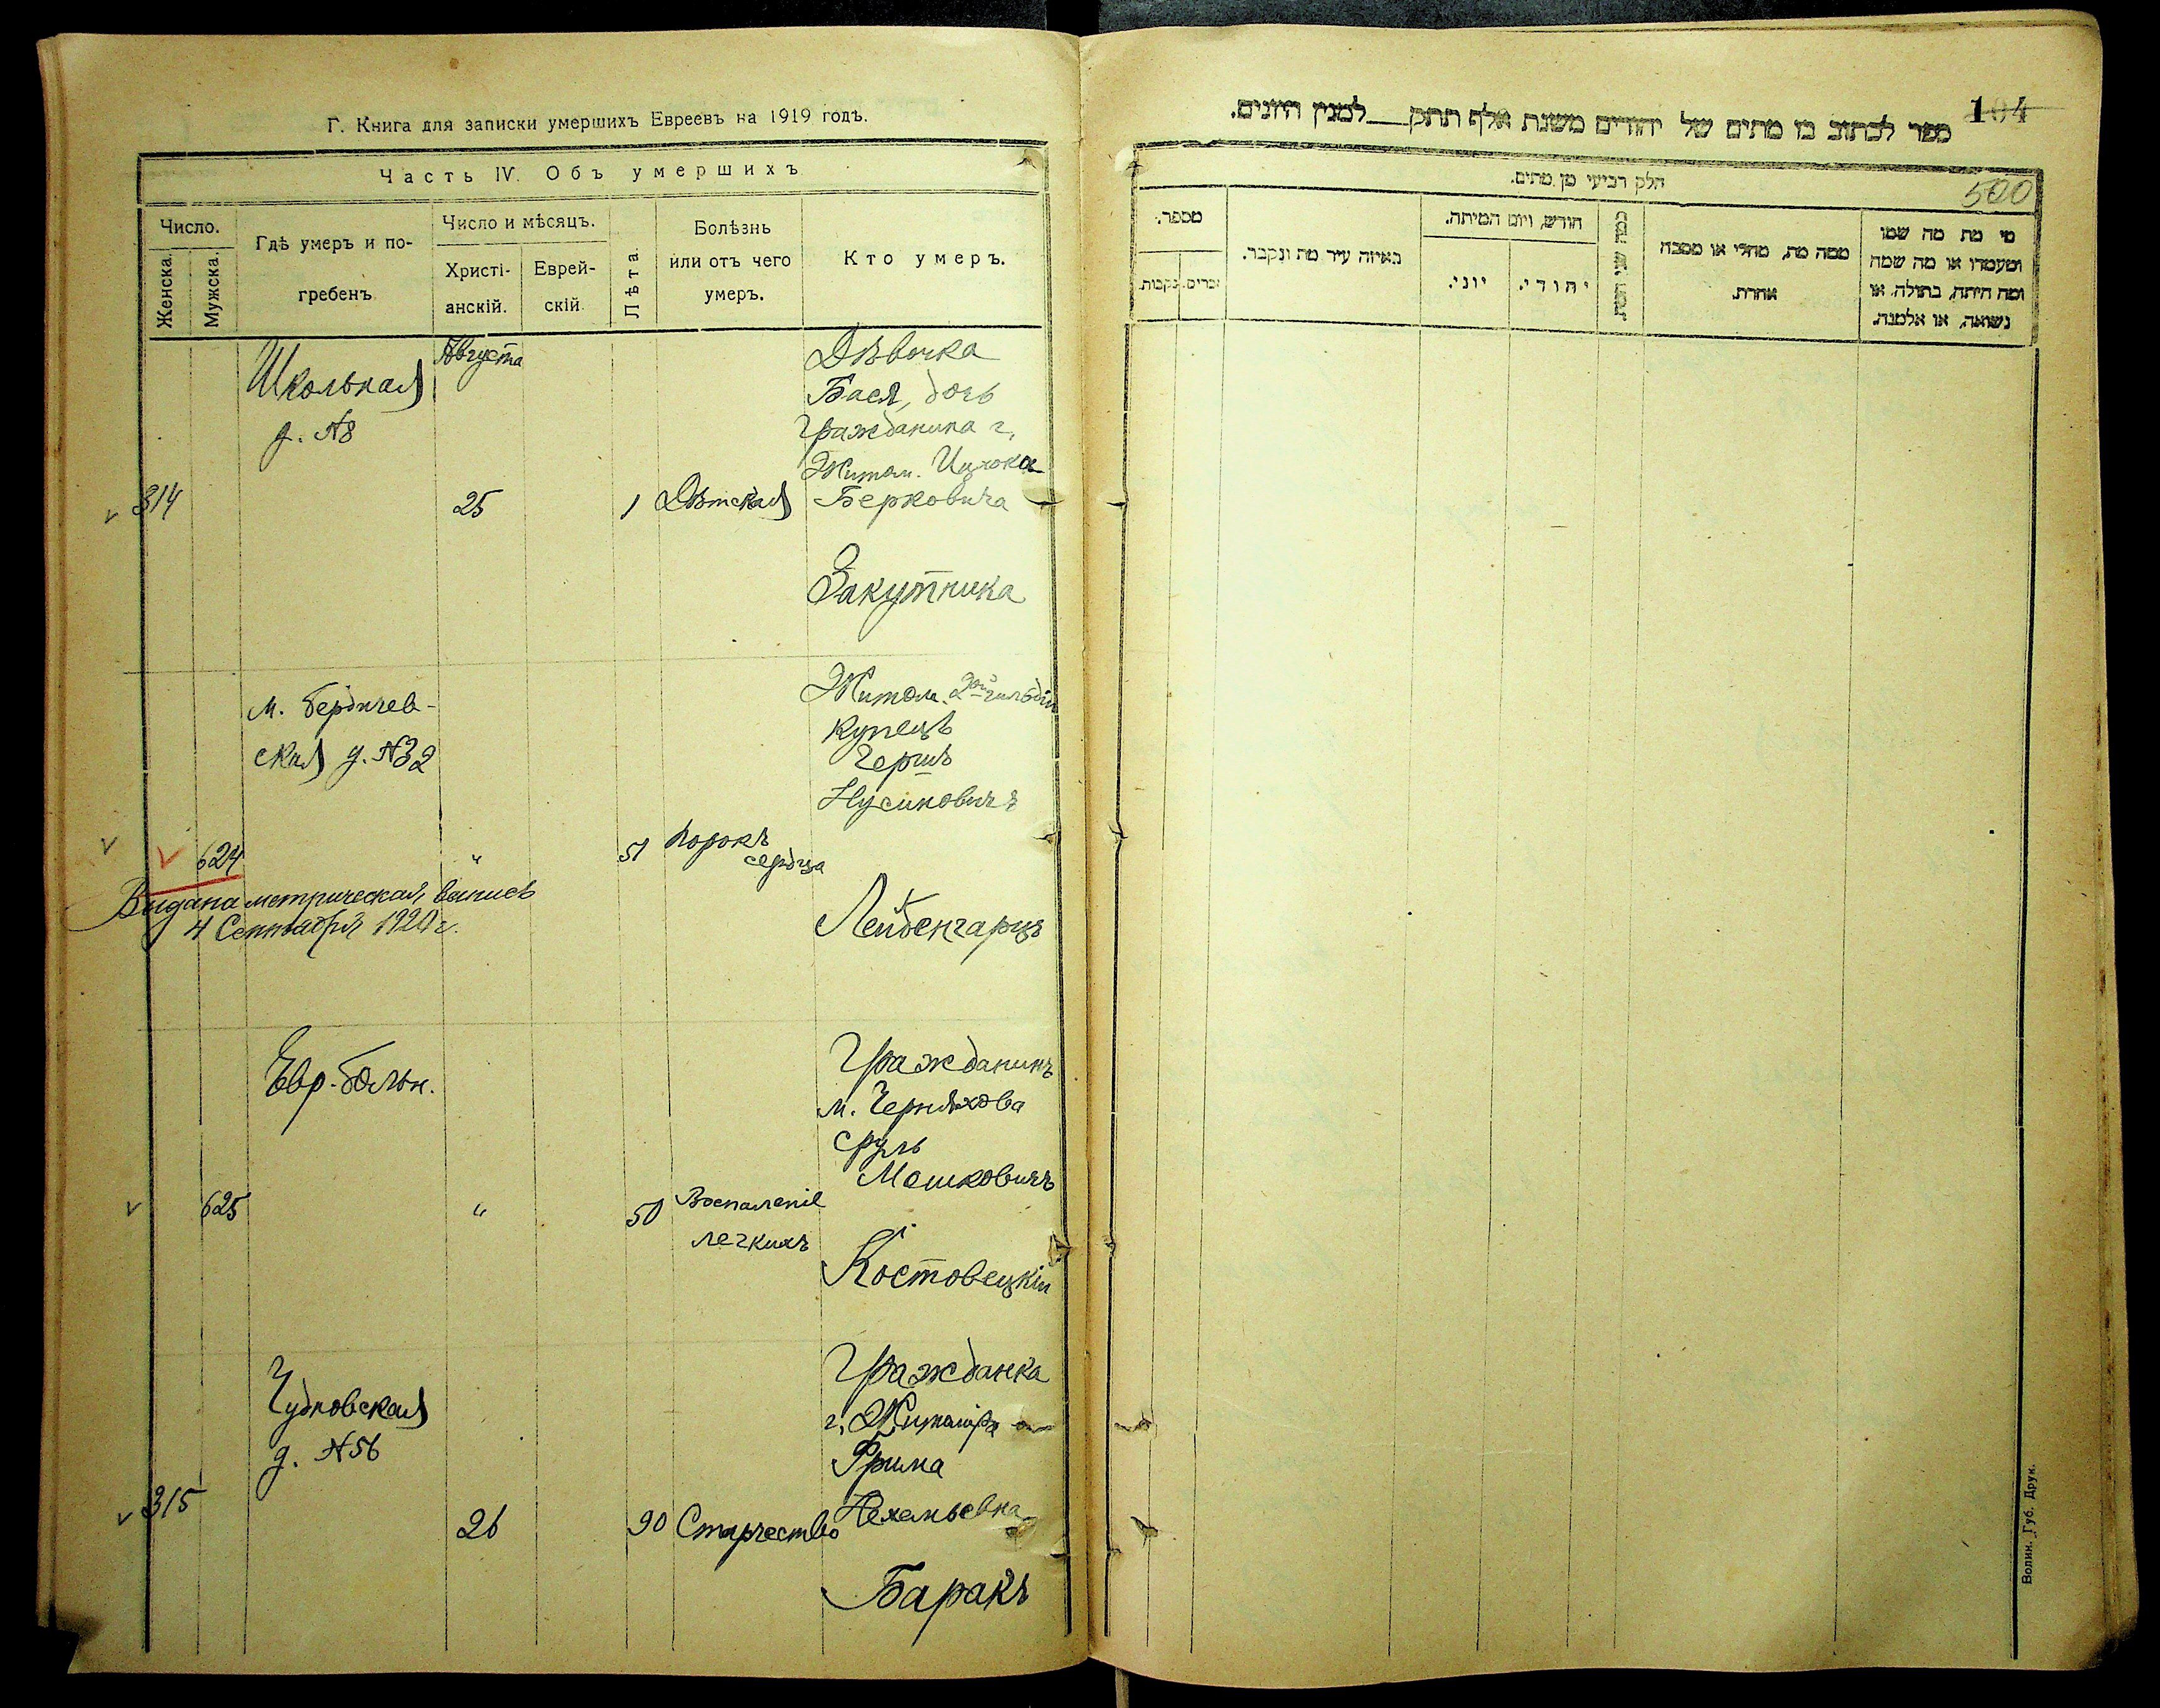 Г. Книга для записки умершихъ Евреевъ на 1919 годъ.
Часть IV. Объ умершихъ
Число.
Женска.
Мужска.
Гдѣ умеръ и по-
гребенъ
Число и мѣсяцъ.
Христі-
анскій.
Еврей-
скій.
Лѣта.
Болѣзнь
или отъ чего
умеръ.
Кто умеръ.
Школьная
д. №8
Августа
314
25
1
Дѣтская
Дѣвочка
Бася, дочь
гражданина г.
Житом. Ицхока
Берковича
Закутника
м. Бердичев-
ская д. №32
624
"
51
Порокъ
сердца
Житом. 2ой гильдіи
купецъ
Гершъ
Нусиновичъ
Лейбенгарцъ
Выдана метрическая выпись
4 Сентября 1920 г.
Евр. больн.
625
"
50
Воспаленіе
легкихъ
Гражданинъ
м. Черняхова
Сруль
Мошковичъ
Костовецкій
Чудновская
д. №56
315
26
90
Старчество
Гражданка
г. Житоміра
Фрима
Нехемьевна
Баракъ
104
ספר לכתוב בו מתים של יהודים משנת אלף תתק___למנין היונים.
500
חלק רביעי מן מתים.
מספר.
זכרים.
נקבות.
באיזה עיר מת ונקבר.
חודש, ויום המיתה.
יוני.
יהודי.
ממה מת, מחלי או מסבה
אחרת.
מי מת מה שמו
ומעמדו או מה שמה
ומה היתה, בתולה, או
נשואה, או אלמנה.
Волин. Губ. Друк.